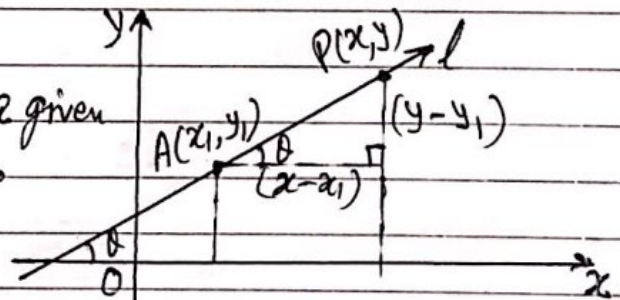 y
P(x,y) l
given
A(x₁,y₁) θ (y-y₁)
(x-x₁)
θ
O x